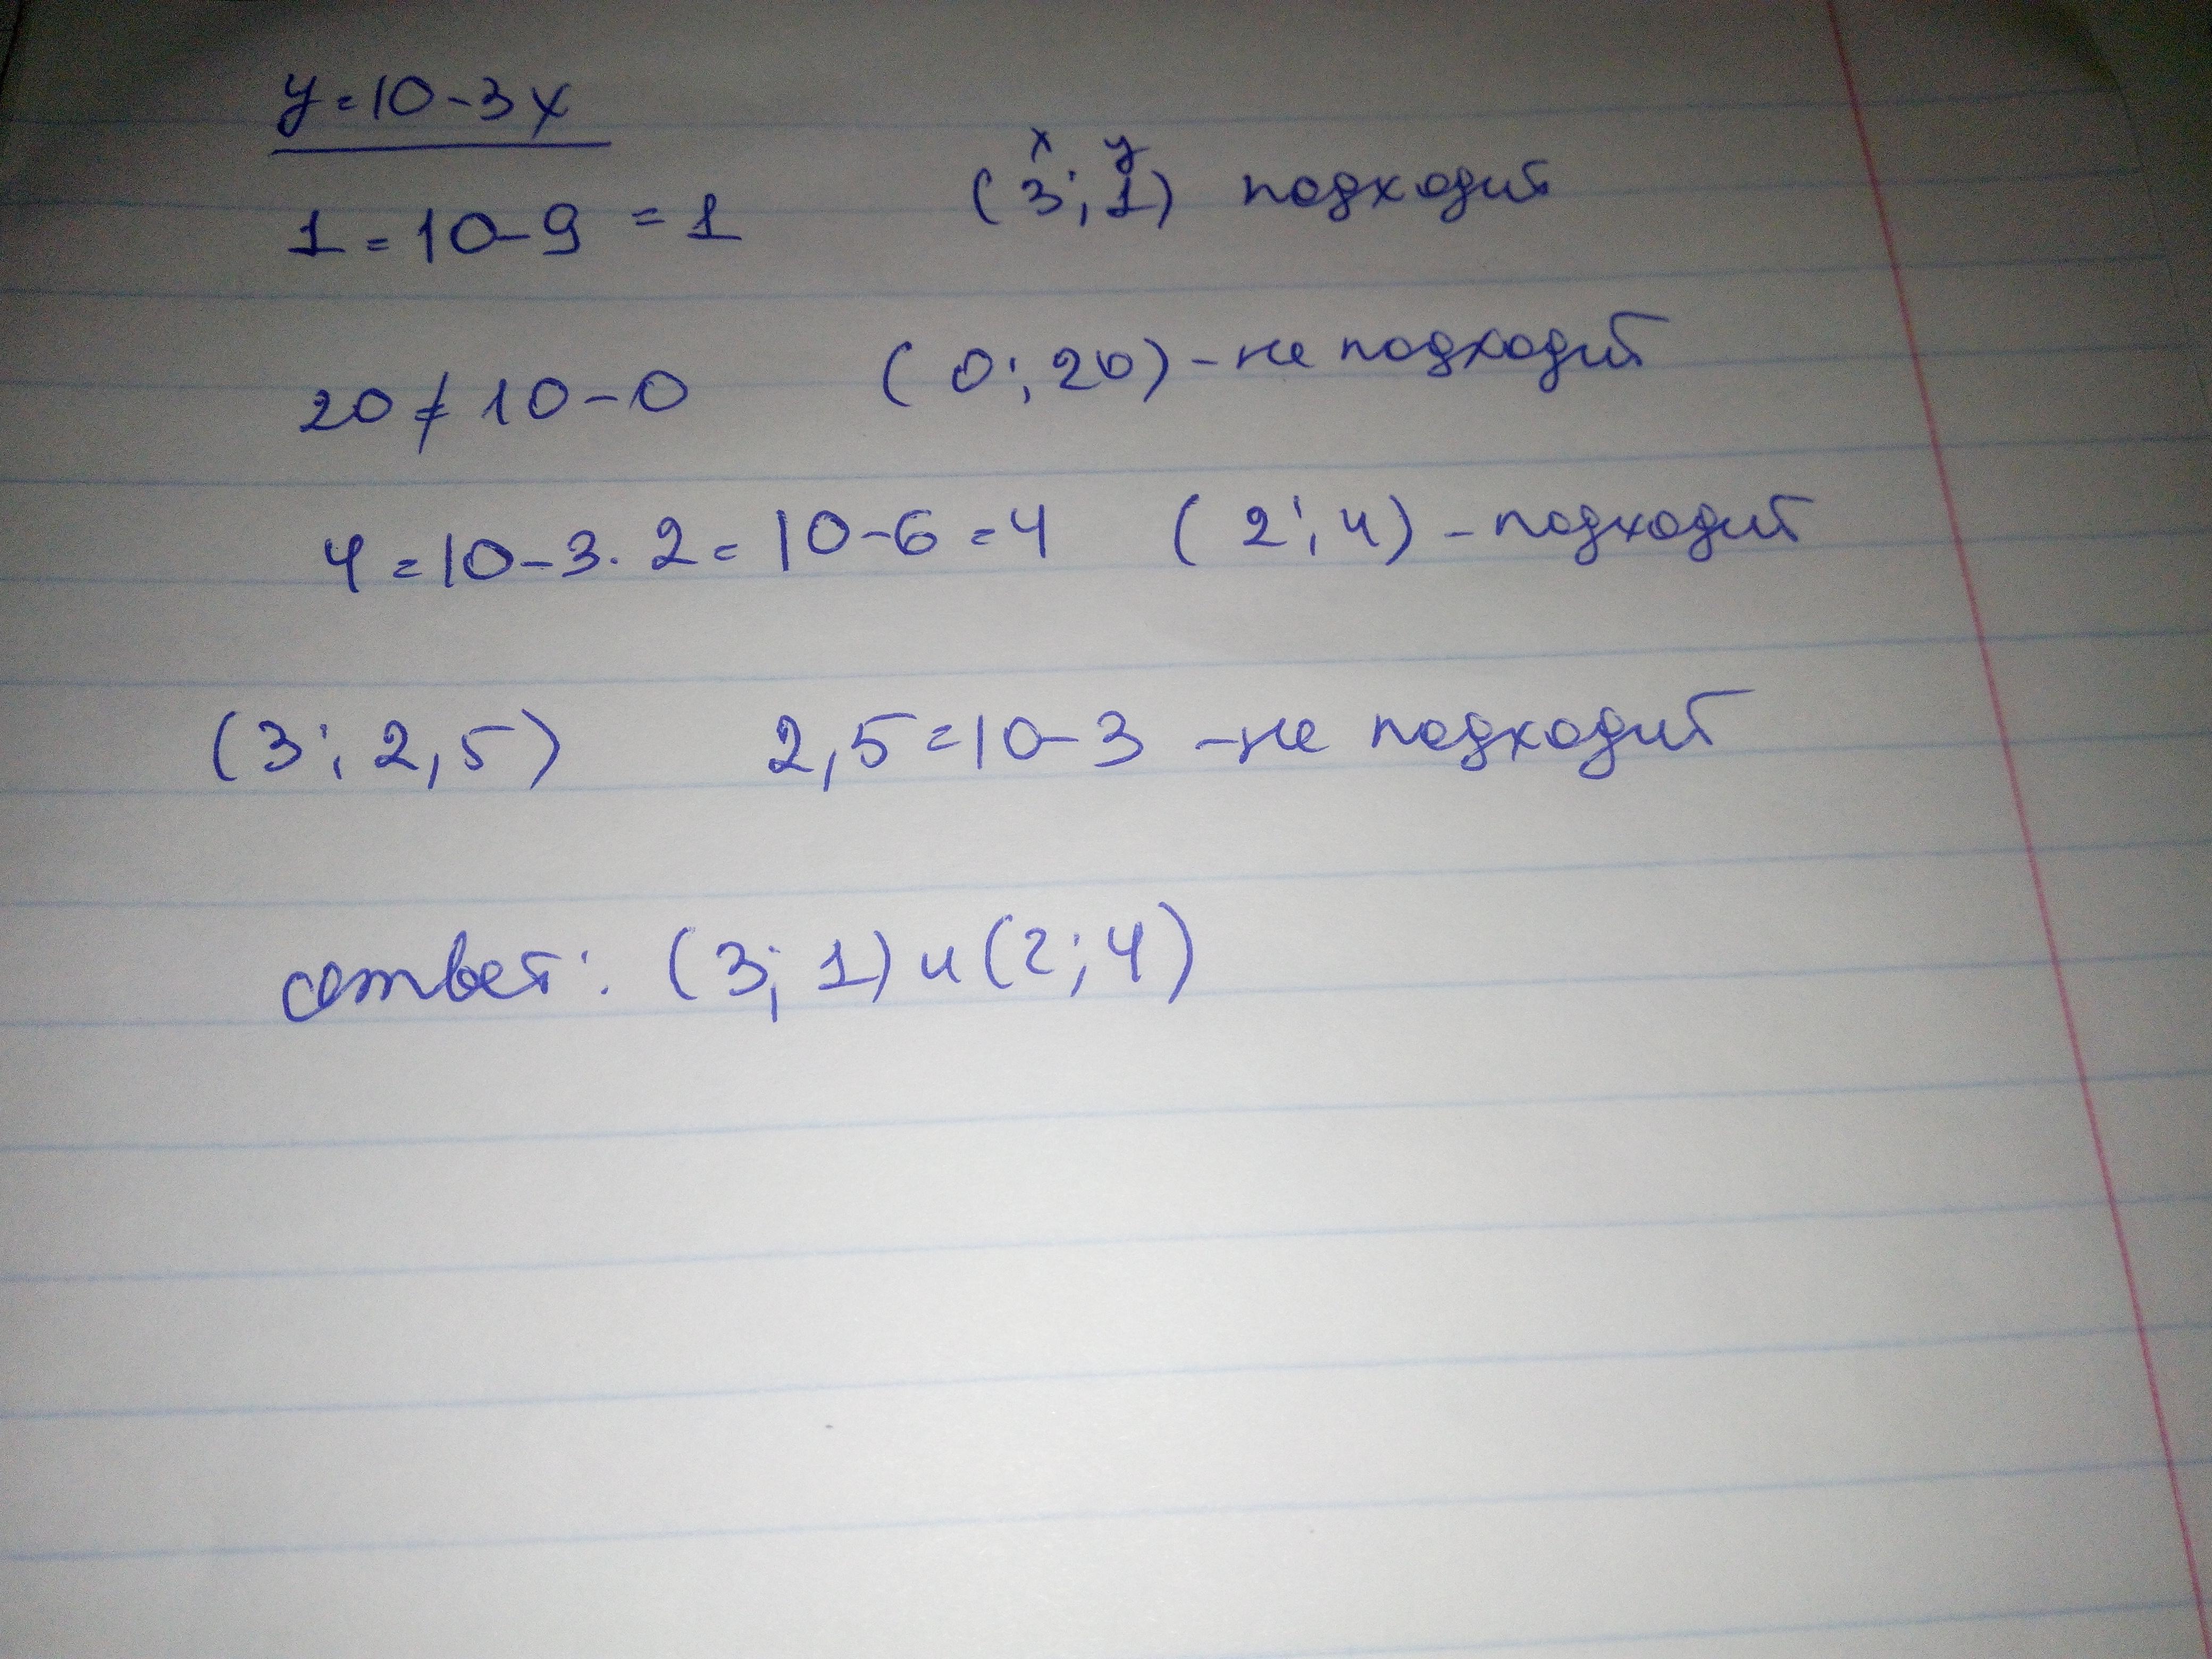 y=10-3x
x y
1=10-9=1 (3;1) подходит
20≠10-0 (0;20)-не подходит
4=10-3·2=10-6=4 (2;4)-подходит
(3;2,5) 2,5=10-3 -не подходит
ответ: (3;1) и (2;4)